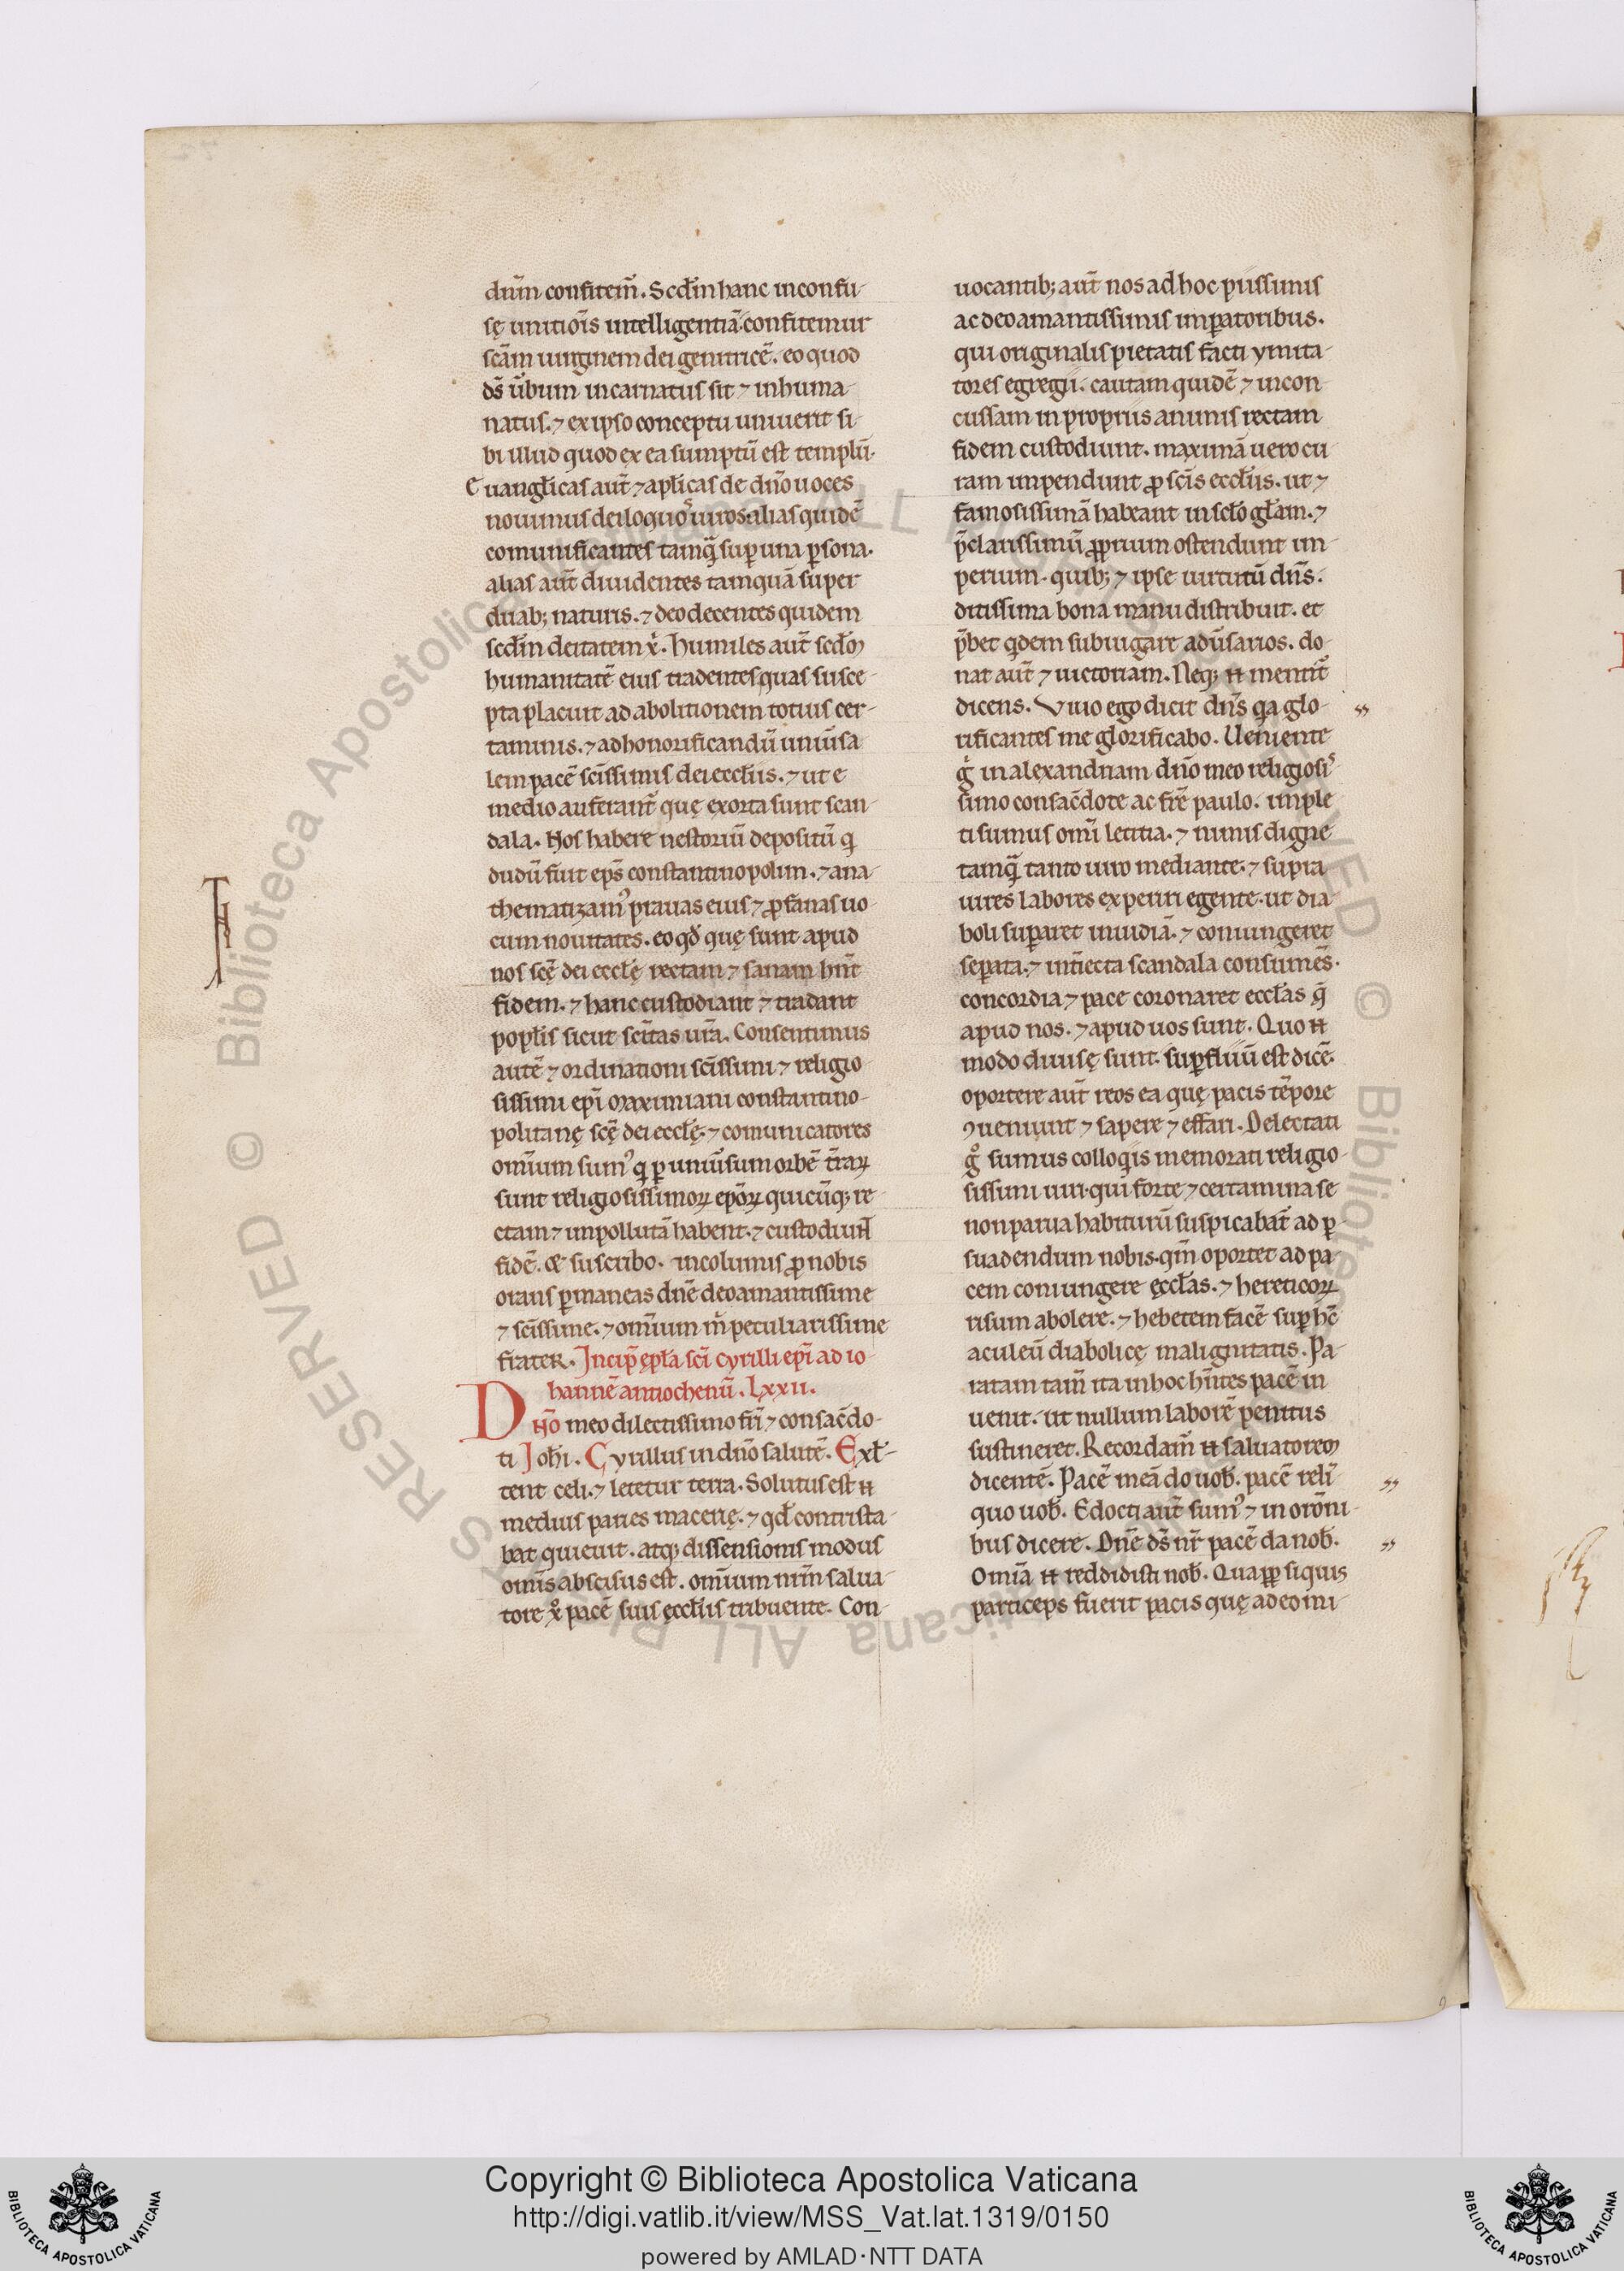 dnm̄ confitem̄. Scd̄m hanc inconfu-
sę unitiōis intelligentiā. confitemur
scām uirginem dei genitricē. eo quod
ds̄ ūbum incarnatus sit ⁊ inhuma-
natus. ⁊ ex ipso conceptu uniuerit si-
bi illud quod ex ea sumptū est templū.
Euangl̄icas aut̄ ⁊ apl̄icas de dn̄o uoces
nouimus deiloquoˢ uiros. alias quidē
comunificantes tamq̄ sup̱ una p̱sona.
alias aut̄ diuidentes tamquā super
duab; naturis. ⁊ deo decentes quidem
scd̄m deitatem xi̇. humiles aut̄ scd̄m
humanitatē eius tradentes quas susce-
pta placuit ad abolitionem totius cer-
taminis. ⁊ ad honorificandū uniūsa-
lem pacē scīssimis dei eccl̄iis. ⁊ ut e
medio auferant᷑ quę exorta sunt scan-
dala. Nos habere nestoriū depositū q
dudū fuit ep̄s constantinopolim. ⁊ ana-
thematizamꝰ prauas eius ⁊ ꝓfanas uo-
cum nouitates. eo qd̄ quę sunt apud
nos scę̄ dei eccl̄ę rectam ⁊ sanam hn̄t
fidem. ⁊ hanc custodiant ⁊ tradant
popl̄is sicut scītas ur̄a. Consentimus
autē ⁊ ordinationi scīssimi ⁊ religio-
sissimi ep̄i maximiani constantino-
politanę scę̄ dei eccl̄ę. ⁊ comunicatores
omīum sumꝰ q p̱ uniūsum orbē t̄raꝝ
sunt religiosissimoꝝ ep̄oꝝ quicūq; re-
ctam ⁊ impollutā habent. ⁊ custodiunt
fidē. Et suscribo. incolumis ꝓ nobis
orans p̱maneas dnē deoamantissime
⁊ scīssime. ⁊ omīum m̊ peculiarissime
frater. Incip̄ ep̄la scī cyrilli ep̄i ad io-
hannē antiochenū. Lxxii.
Dn̄o meo dilectissimo fr̄i ⁊ consac̄do-
ti Joh̄i. Cyrillus in dn̄o salutē. Exl̄-
tent celi. ⁊ letetur terra. Solutus est n̄
medius paries macerię. ⁊ qd̄ contrista-
bat quieuit. atq; dissensionis modus
omīs abscisus est. omīum nr̄m salua-
tore xo̊ pacē suis ęccl̄iis tribuente. Con-
uocantib; aut̄ nos ad hoc piissimis
ac deo amantissimis imp̱atoribus.
qui originalis pietatis facti ymita-
tores egregii. cautam quidē ⁊ incon-
cussam in propriis animis rectam
fidem custodiunt. maximā uero cu-
ram impendunt ꝓ scīs eccl̄iis. ut ⁊
famosissimā habeant in sclō gl̄am. ⁊
p̄clarissimū ꝓprium ostendunt im-
perium. quib; ⁊ ipse uirtutū dn̄s.
ditissima bona manu distribuit. et
p̄bet qdem subiugare adūsarios. do-
nat aut̄ ⁊ uictoriam. Neq; n̄ mentit᷑
dicens. Viuo ego dicit dn̄s qa glo-
rificantes me glorificabo. Ueniente
g̊ in alexandriam dn̄o meo religiosiˢ-
simo consac̄dote ac fr̄e paulo. imple-
ti sumus omī letitia. ⁊ nimis digne
tamq̄ tanto uiro mediante. ⁊ supra
uires labores experiri egente. ut dia-
boli sup̱aret inuidiā. ⁊ coniungeret
sep̱ata. ⁊ int̄iecta scandala consumēs.
concordia ⁊ pace coronaret eccl̄as q̄
apud nos. ⁊ apud uos sunt. Quo n̄
modo diuisę sunt. sup̱fluū est dicē.
oportere aut̄ reos ea quę pacis tēpore
ꝯueniunt ⁊ sapere ⁊ effari. Delectati
g̊ sumus colloqis memorati religio-
sissimi uiri. qui forte ⁊ certamina se
non parua habiturū suspicabat᷑ ad p̱-
suadendum nobis. qm̄ oportet ad pa-
cem coniungere ęccl̄as. ⁊ hereticoꝝ
risum abolere. ⁊ hebetem facē sup̱ hc̄
aculeū diabolicę malignitatis. Pa-
ratam tam̄ ita in hoc hn̄tes pacē in-
uenit. ut nullum laborē penitus
sustineret. Recordam᷑ n̄ saluatorem
dicentē. Pacē meā do uob̄. pacē reli-
quo uob̄. Edocti aut̄ sumꝰ ⁊ in orōni-
bus dicere. Dnē ds̄ nr̄ pacē da nob̄.
Omīa n̄ reddidisti nob̄. Quaꝓp̱ siquis
particeps fuerit pacis quę ad eo mi-